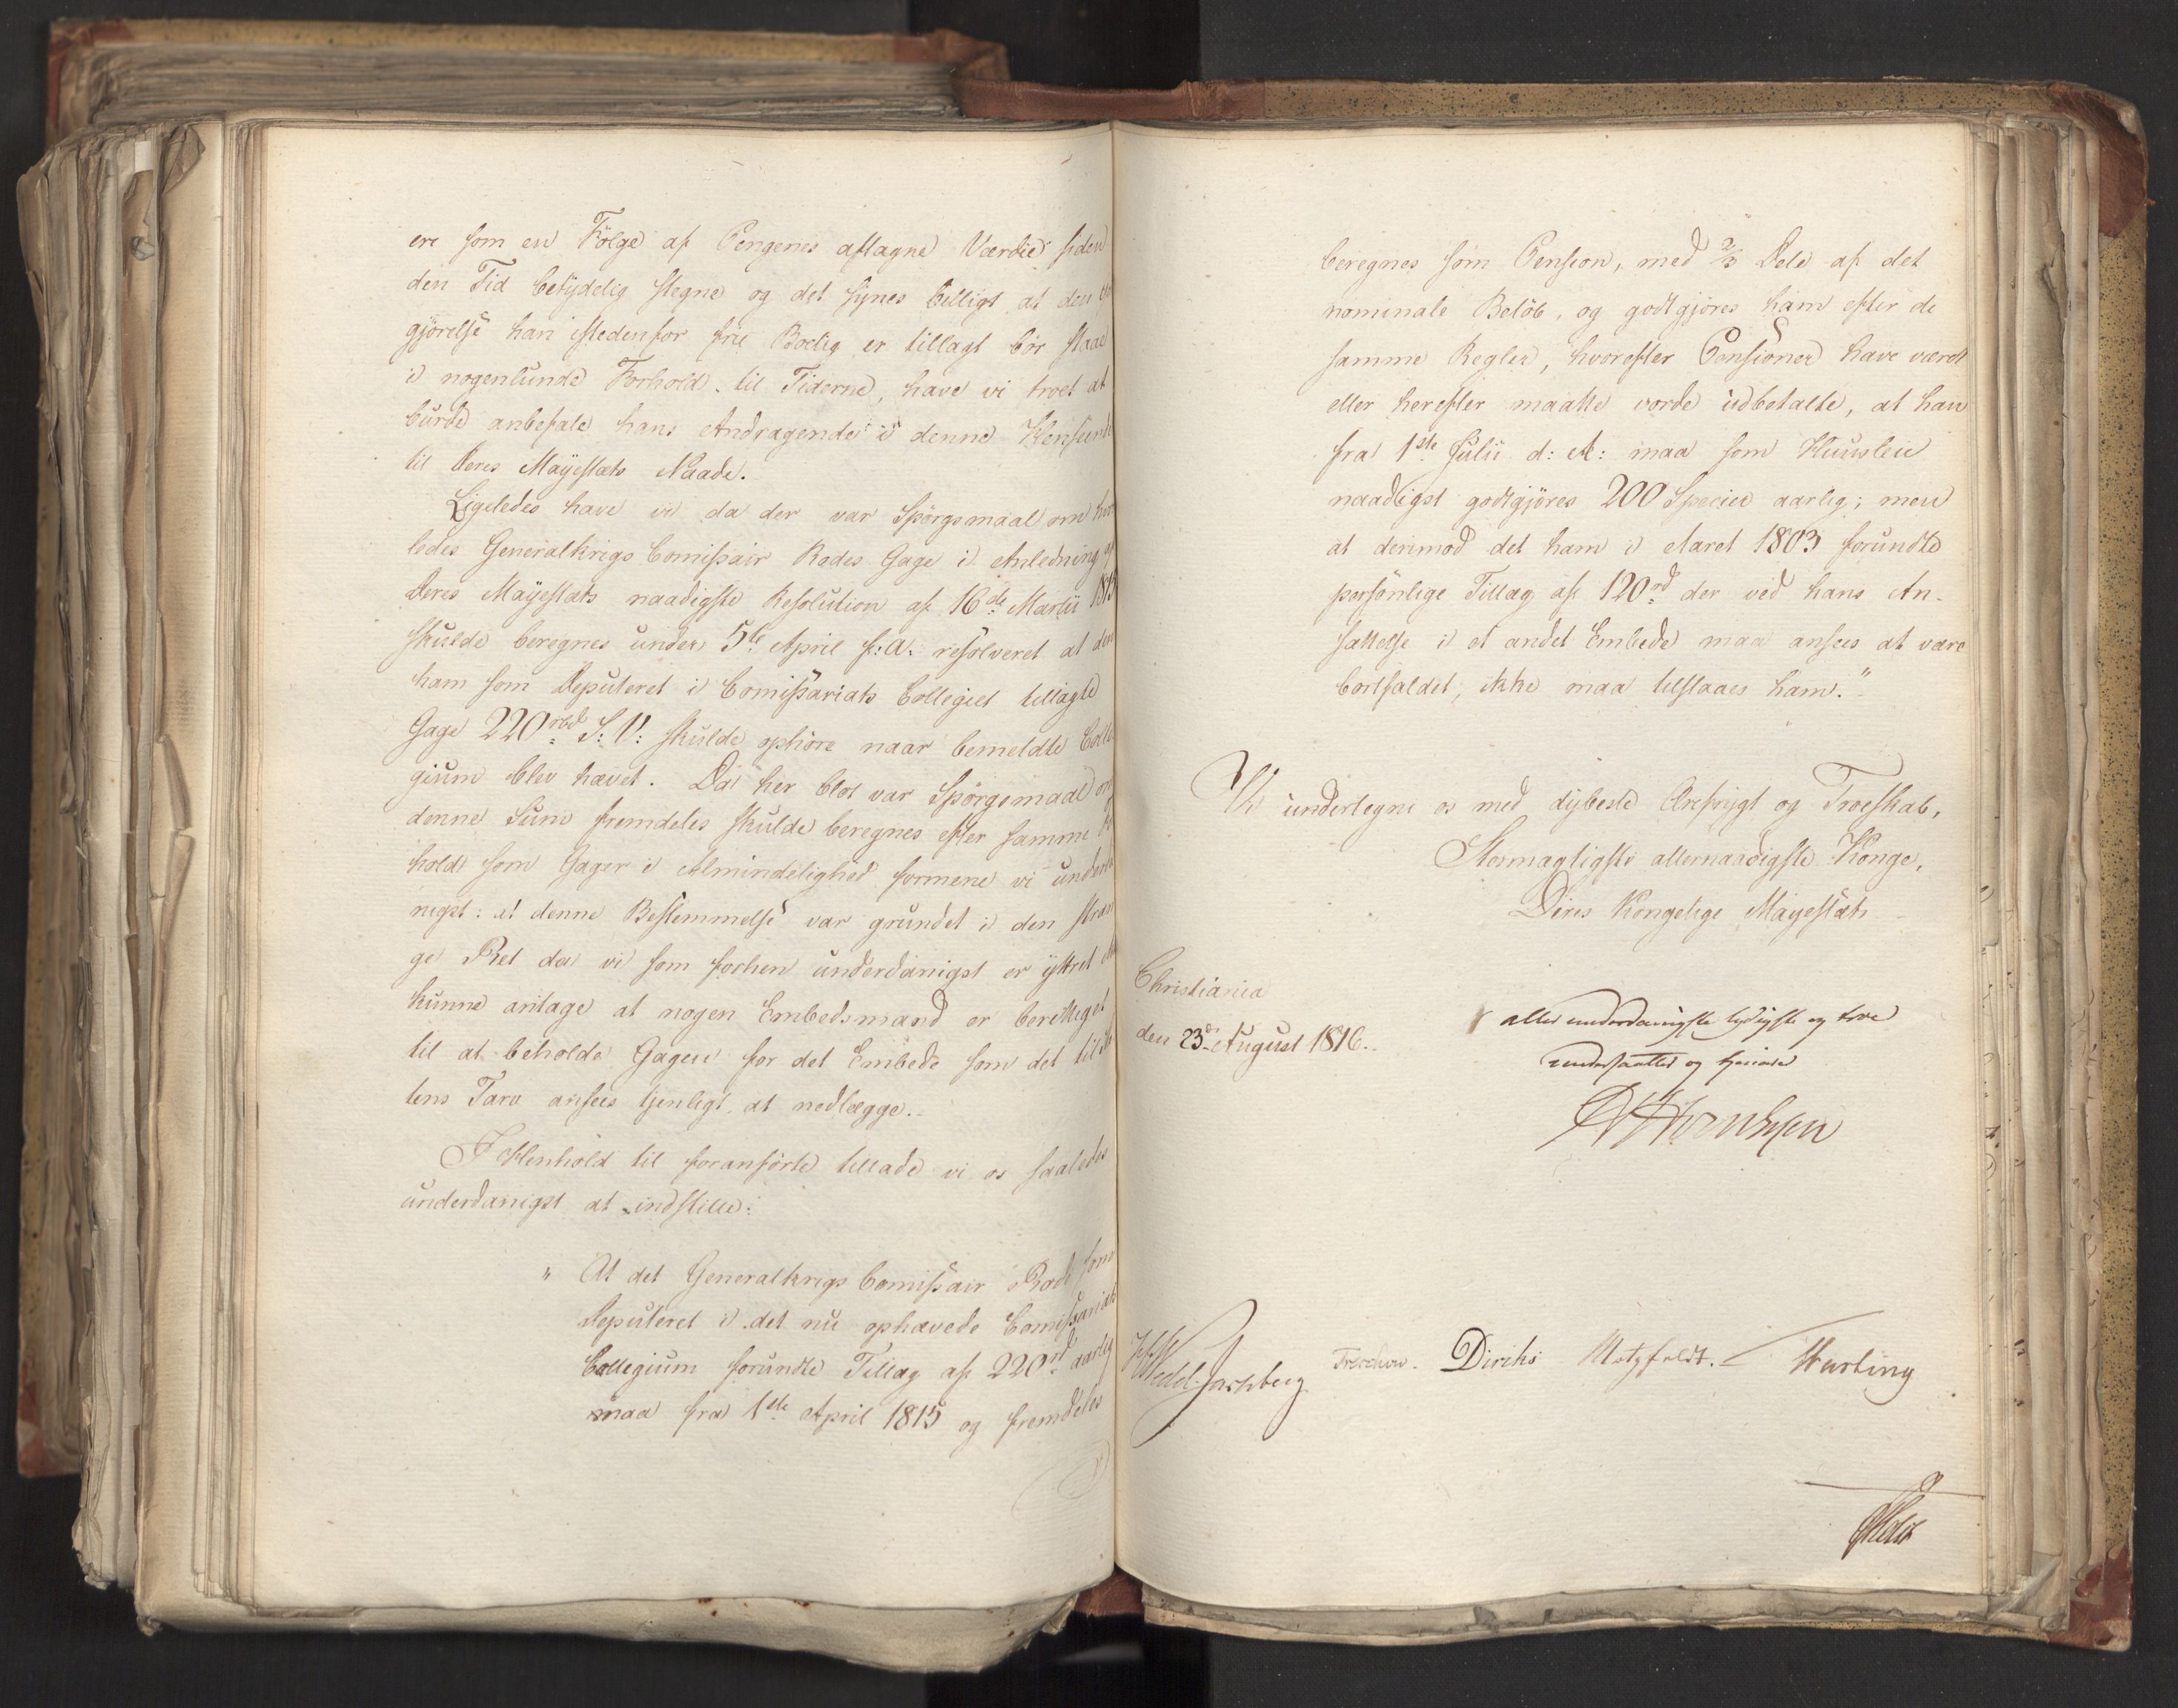 ere som en Følge af Pengenes aftagne Værdie siden
den Tid betydelig stegne og det synes billigt at den
gjørelse han istedenfor frie Boelig er tillagt bør staae
i nogenlunde Forhold til Tiderne, have vi troet at
burde anbefale hans Andragende i denne Henseende
til Deres Mayestæts Naade.
Ligeledes have vi da der var Spørgsmaal om hvor
ledes Generalkrigs Comissair Rodes Gage i Anledning af
Deres Mayestæts naadigste Resolution af 16de Martii 1815
skulde beregnes under 5te April s: A: resolveret at den
ham som Deputeret i Comissariats Collegiet tillagte
Gage 220 rbd S: V: skulde ophøre naar bemeldte Colle
gium blev hævet. Da her blot var Spørgsmaal om
denne Sum fremdeles skulde beregnes efter samme
hold som Gager i Almindelighed formene vi underda
nigst: at denne Bestemmelse var grundet i den stræn
ge Ret da vi som forhen underdanigst er yttret
kunne antage at nogen Embedsmand er berettiget
til at beholde Gagen for det Embede som det til
tens Tarv ansees tjenligt at nedlægge.
I Henhold til foranførte tillade vi os saaledes
underdanigst at indstille:
" At det Generalkrigs Comissair Rode som
Deputeret i det nu ophævede Comissariats
Collegium forundte Tillæg af 220 rd aarlig
maa fra 1ste April 1815 og fremdeles
beregnes som Pension, med 2/3 Dele af det
nominale Beløb, og godtgjøres ham efter de
samme Regler, hvorefter Pensioner have været
eller herefter maatte vorde udbetalte, at han
fra 1ste Julii d: A: maa som Huusleie
naadigst godtgjøres 200 Specier aarlig; men
at derimod det ham i Aaret 1803 forundte
personlige Tillæg af 120 rd der ved hans An-
sættelse i et andet Embede maa ansees at være
bortfaldet, ikke maa tilstaaes ham."
Vi undertegne os med dybeste Ærefrygt og Troeskab,
Stormægtigste allernaadigste Konge,
Deres Kongelige Mayestæts
Christiania
den 23de August 1816.
allerunderdanigste lydigste og troe
undersaatter og tjenere
Hornbsen
Wedel Jarlsberg Treschow. Diriks Motzfeldt. Hersleb
Holst